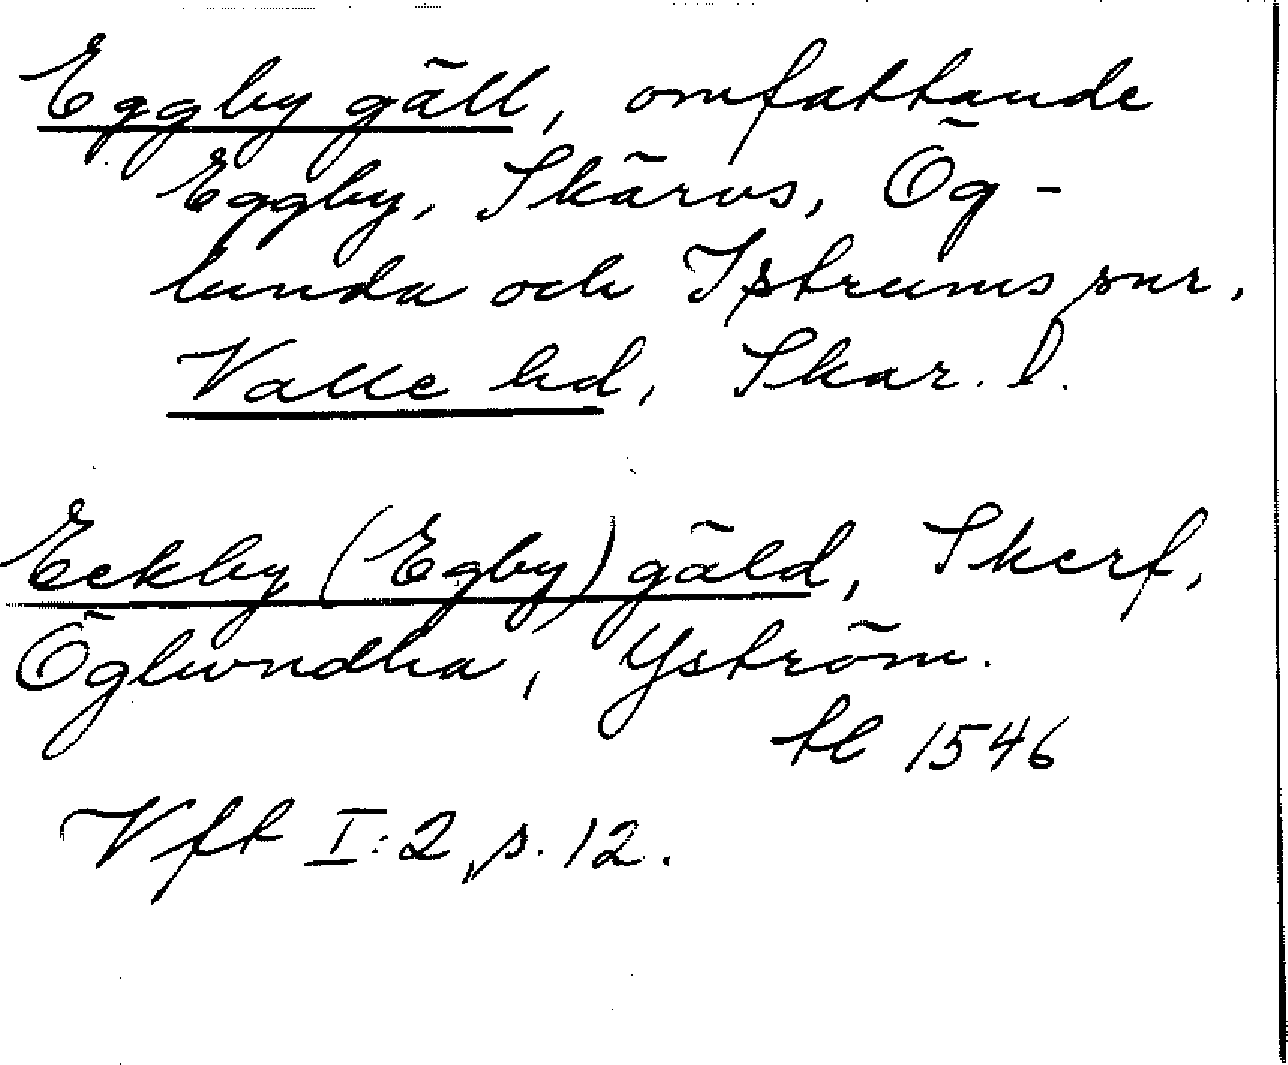 Eggby gäll, omfattande
Eggby, Skärvs, Ög-
lunda och Istrums snr,
Valle hd, Skar. l.
Eckby (Egby) gäld, Skerf,
Öglwndha, Yström.
tl 1546
Vft I:2, s. 12.